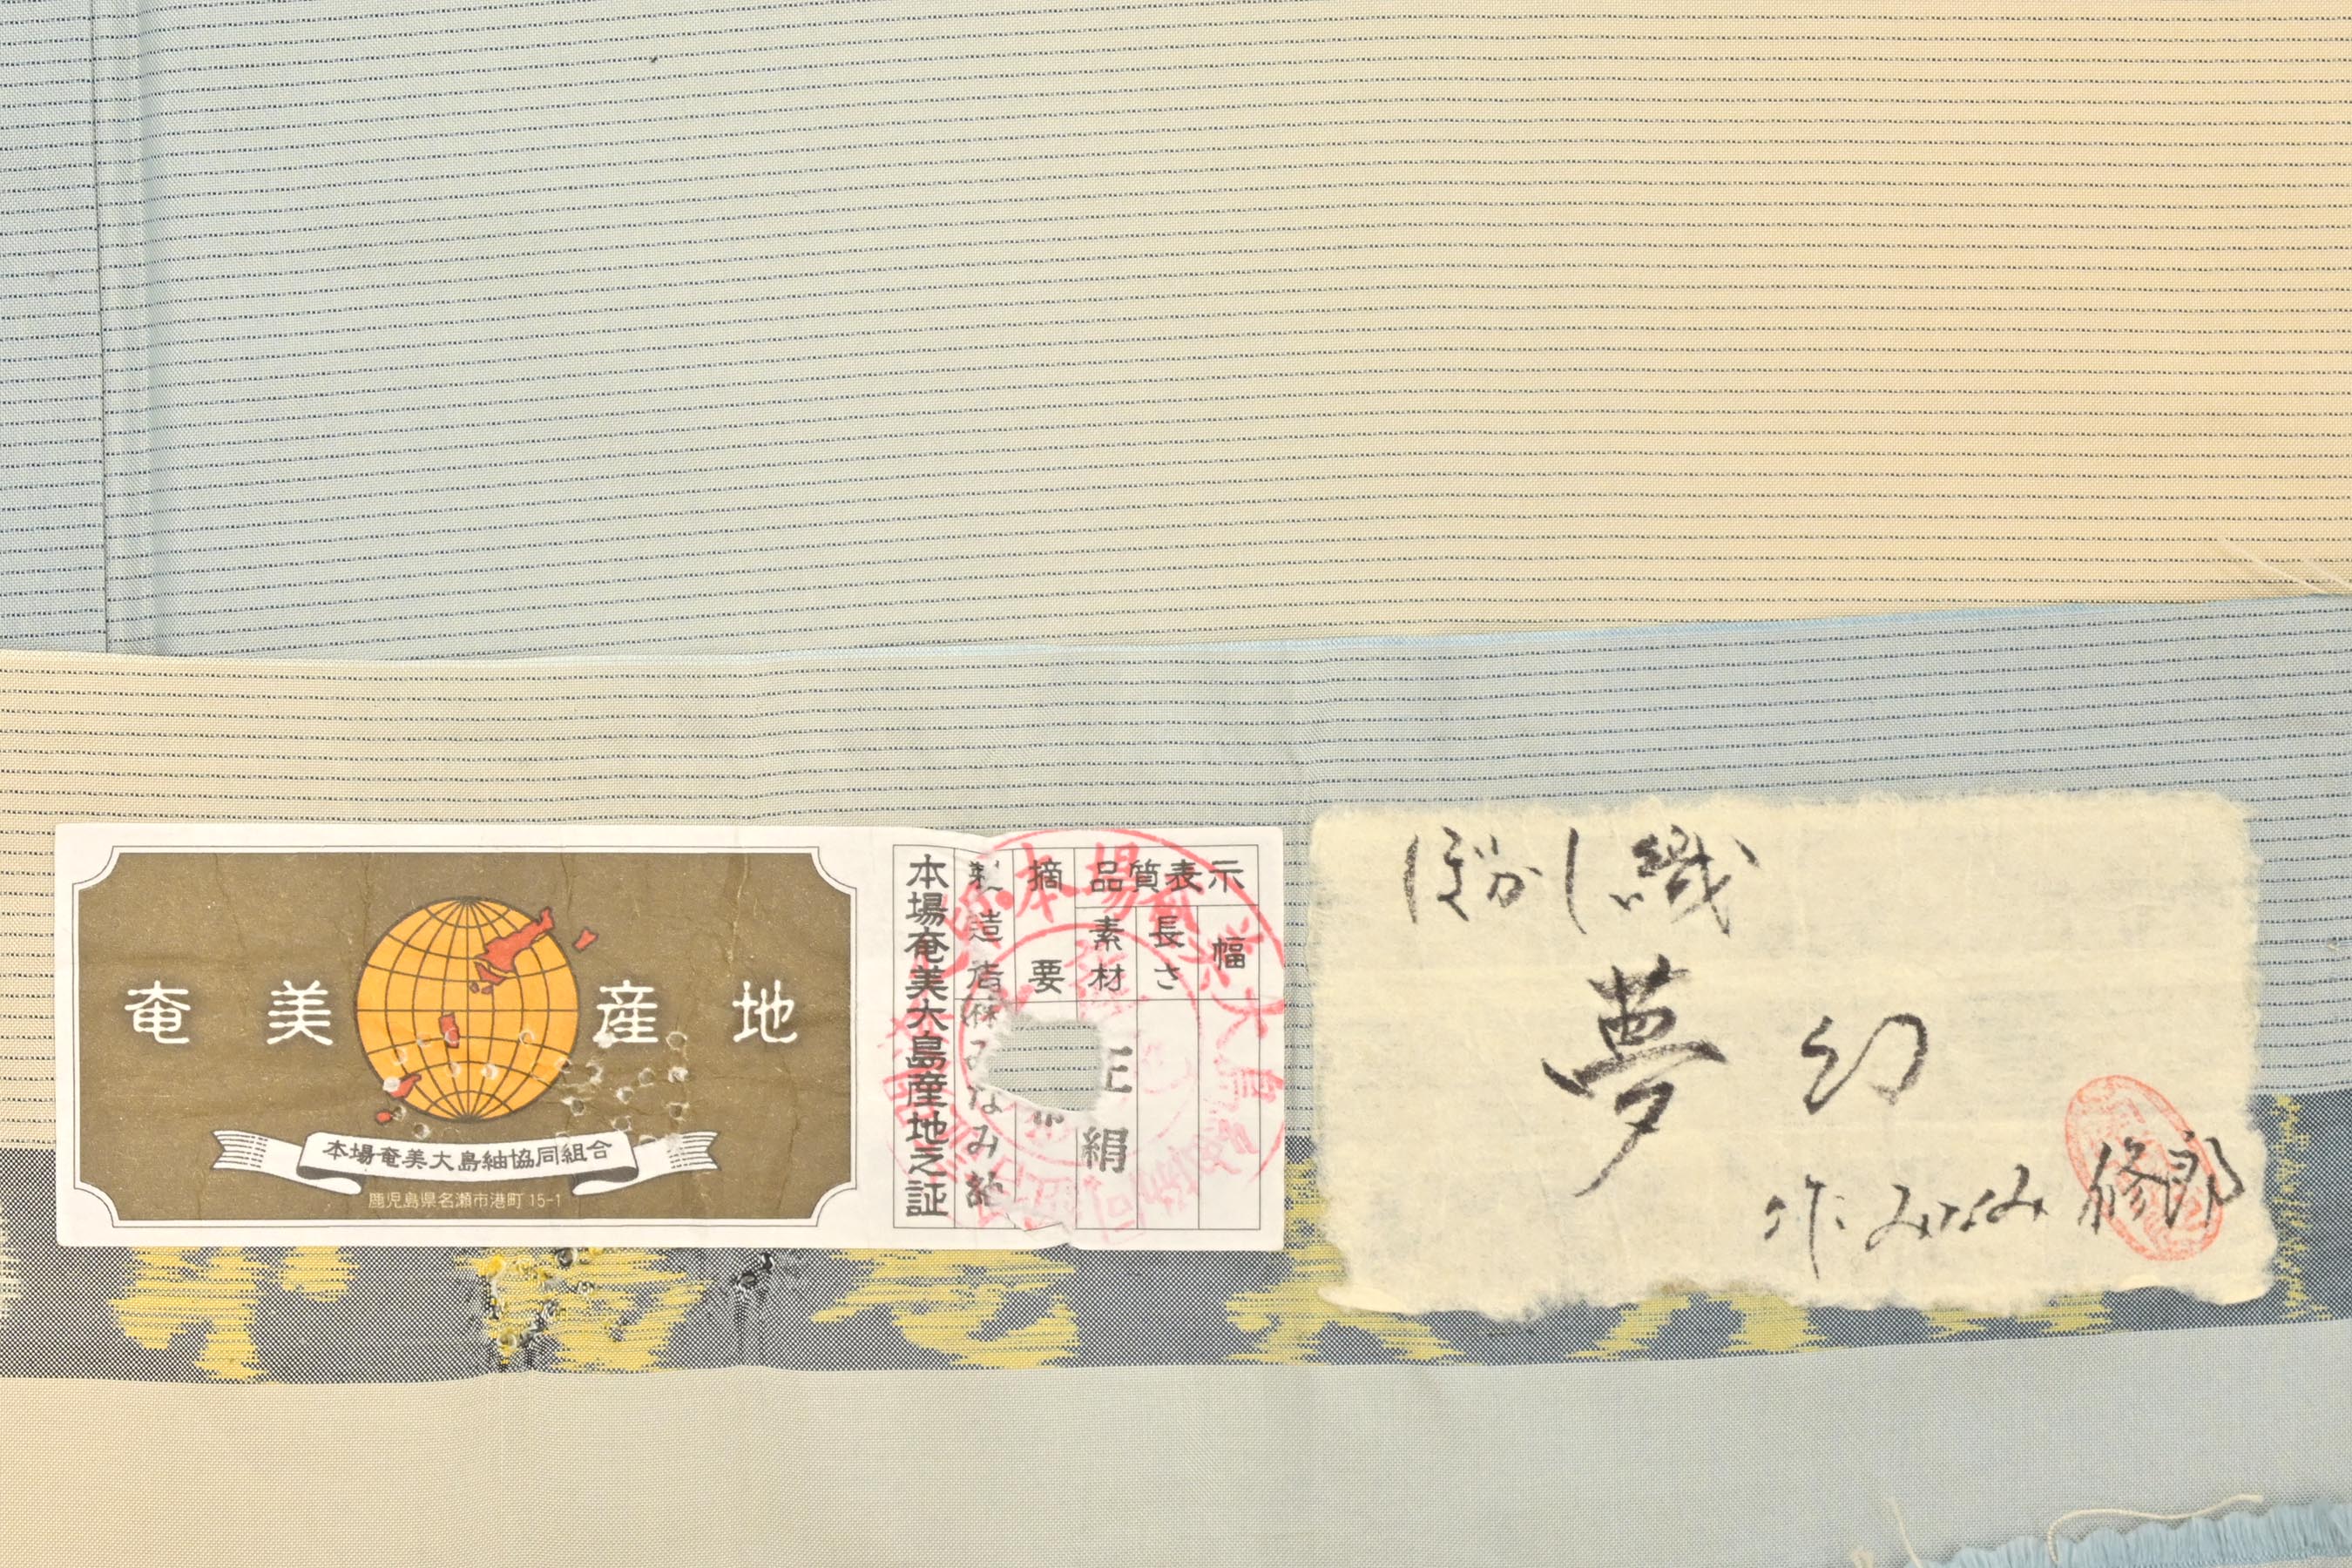 奄美産地
本場奄美大島紬協同組合
鹿児島県名瀬市港町 15-1
本場奄美大島産地之証
製造者
摘要
品質表示
素材
長さ
幅
正絹
ぼかし織
夢幻
作 みなみ 修郎